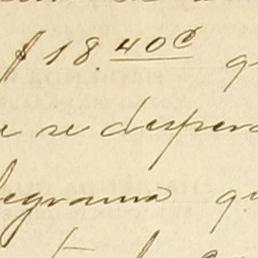 $ 18.40c q
e se desper
legrama qu